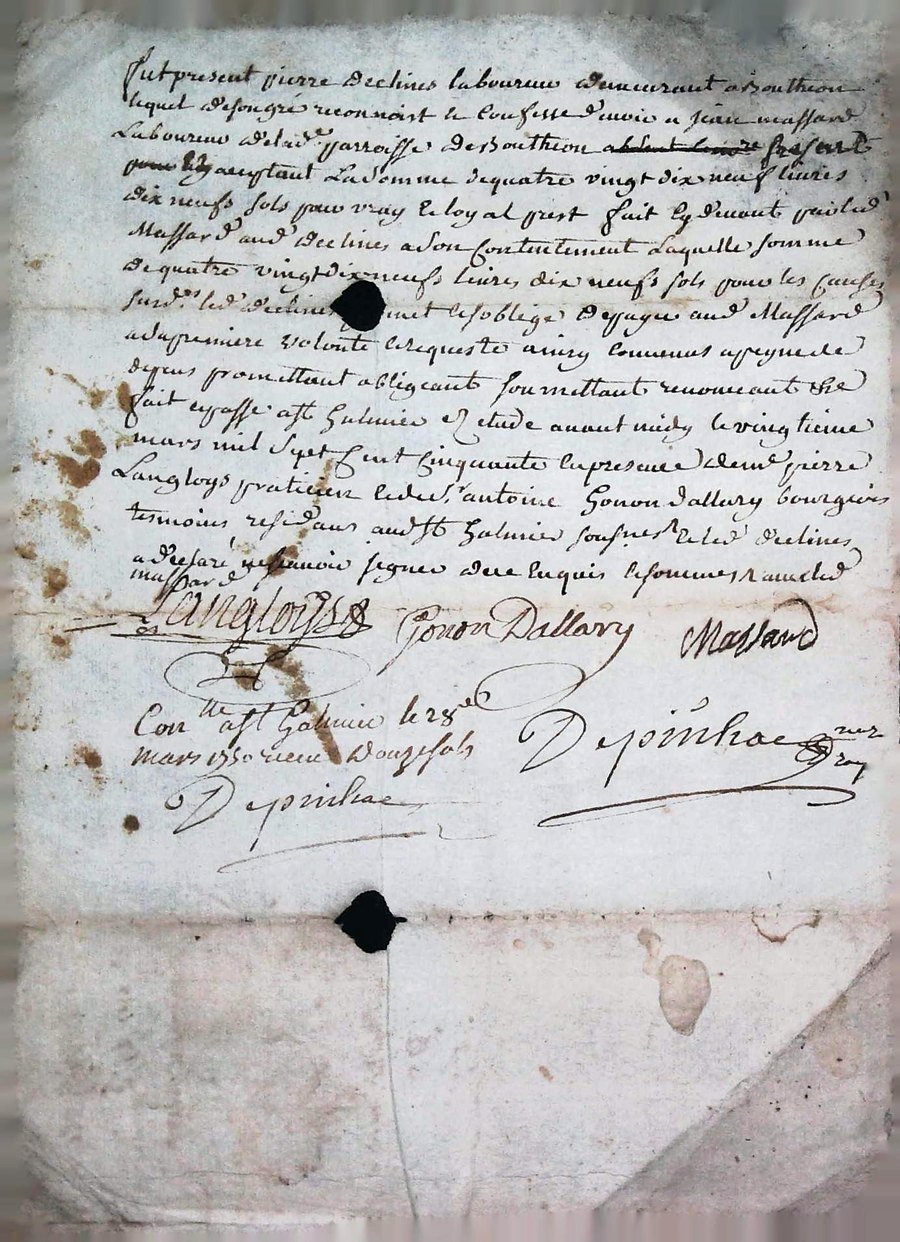 fut present pierre declines laboureur demeurant a Boutheon
lequel desongré reconnoist et Confesse devoir a jean massard
Laboureur deladᵉ parroisse de Boutheon present
acceptant La somme dequatre vingt dix neuf livres
dix neufs sols pour vray et loyal prest fait Cy devant par led
Massard aud declines a son Contentement Laquelle somme
de quatre vingt dix neufs livres dix neufs sols pour les Causes
surdˢ led declines met et soblige de payer aud Massard
a sa premiere volonté et requeste ainsy Convenus a peyne de
depens promettant obligeant soumettant renonceant &c
fait et passé a St Galmier Etude avant midy le vingtieme
mars mil Sept Cent Cinquante en presence de mᵉ pierre
Langloys praticien et de sʳ antoine Gonon Dallary bourgeois
tesmoins residans aud St Galmier et led declines
a declaré ne scavoir signer de ce Enquis et sommés led
massard
Langloys
Gonon Dallary
Massard
Conˡˡᵉ a St Galmier le 28ᵉ
mars 1750 receu Douze sols
Depinhac
Depinhac